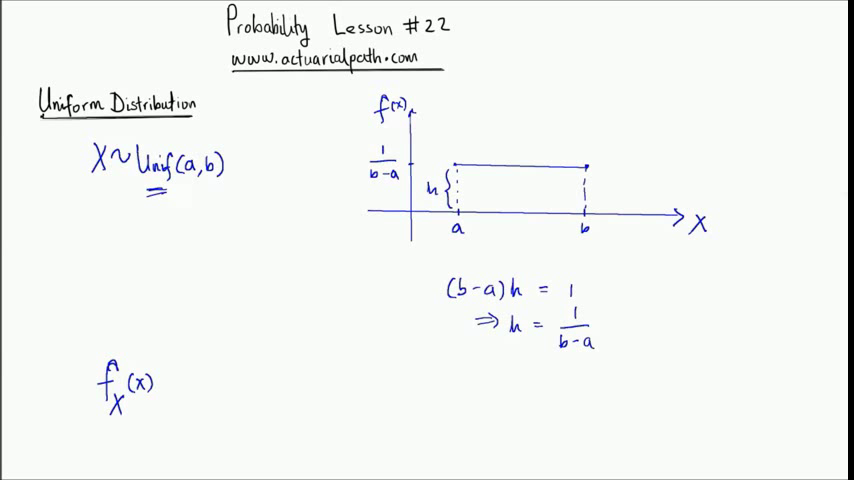 Probability Lesson #22
www.actuarialpath.com
Uniform Distribution
X ~ Unif(a,b)
f(x)
1
b-a
h
a
b
X
(b-a)h = 1
⇒ h = 1
b-a
f
X
(x)